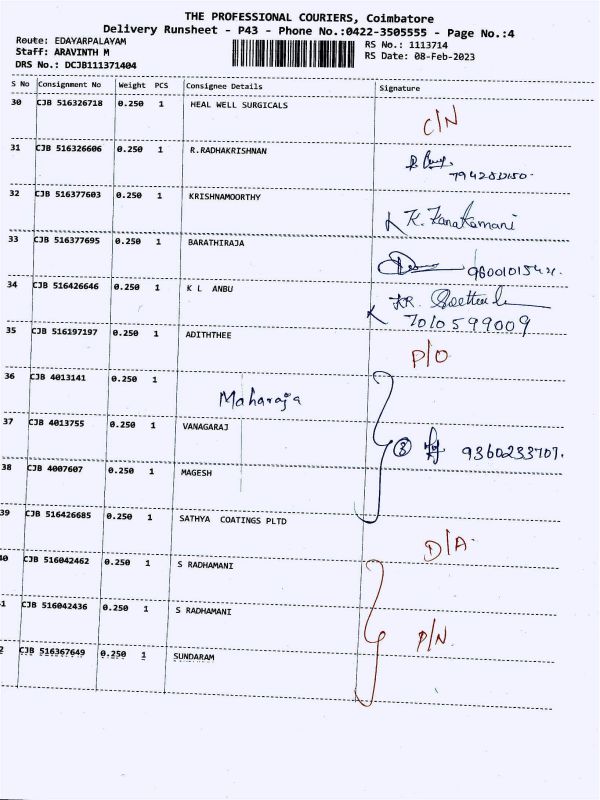 THE PROFESSIONAL COURIERS, Coimbatore
Delivery Runsheet - P43 - Phone No.:0422-3505555 - Page No.:4
Route: EDAYARPALAYAM
RS No.: 1113714
Staff: ARAVINTH M
RS Date: 08-Feb-2023
DRS No.: DCJB111371404
S No Consignment No Weight PCS Consignee Details Signature
30 CJB 516326718 0.250 1 HEAL WELL SURGICALS C/N
31 CJB 516326606 0.250 1 R.RADHAKRISHNAN
32 CJB 516377603 0.250 1 KRISHNAMOORTHY K. Kanakamani
33 CJB 516377695 0.250 1 BARATHIRAJA
34 CJB 516426646 0.250 1 K L ANBU
7010599009
35 CJB 516197197 0.250 1 ADITHTHEE P/O
36 CJB 4013141 0.250 1 Maharaja
37 CJB 4013755 0.250 1 VANAGARAJ ③ 9360233707.
38 CJB 4007607 0.250 1 MAGESH
39 CJB 516426685 0.250 1 SATHYA COATINGS PLTD D/A.
40 CJB 516042462 0.250 1 S RADHAMANI
1 CJB 516042436 0.250 1 S RADHAMANI P/N.
2 CJB 516367649 0.250 1 SUNDARAM